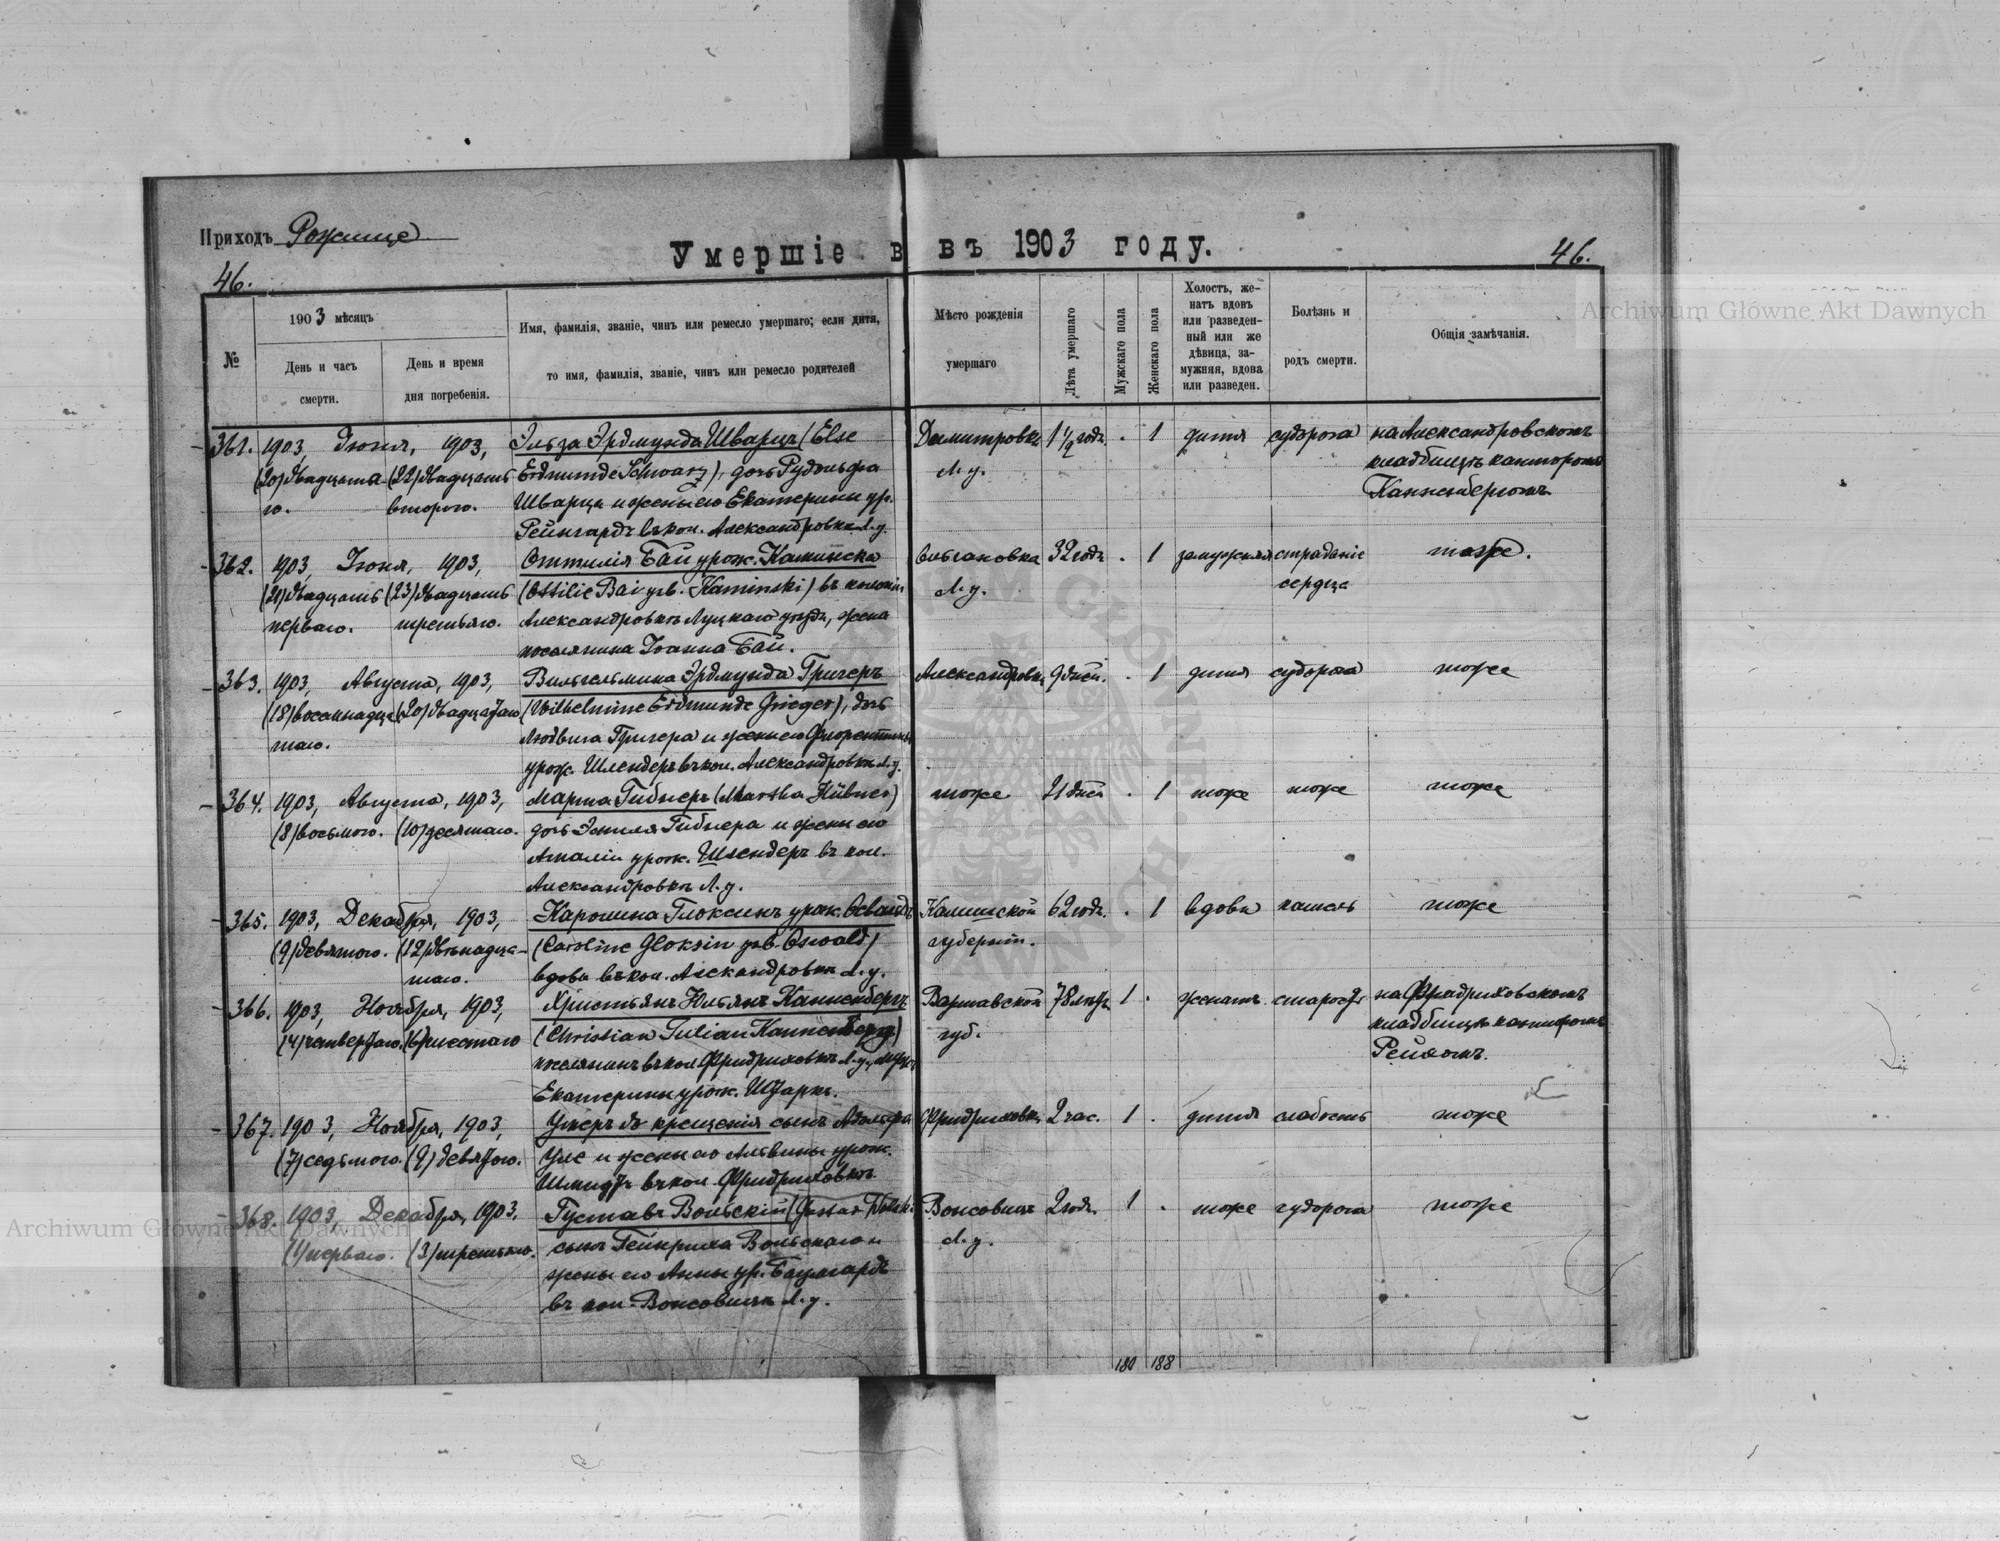 Приходъ Рожище
Умершіе въ 1903 году.
46.
46.
№
1903 мѣсяцъ
День и часъ смерти.
День и время дня погребенія.
Имя, фамилія, званіе, чинъ или ремесло умершаго; если дитя,
то имя, фамилія, званіе, чинъ или ремесло родителей
Мѣсто рожденія умершаго
Лѣта умершаго
Мужскаго пола
Женскаго пола
Холостъ, же-
натъ вдовъ
или разведен-
ный или же
дѣвица, за-
мужняя, вдова
или разведен.
Болѣзнь и
родъ смерти.
Общія замѣчанія.
361. 1903, Іюня, 1903, Эльза Эрдмунда Шварцъ (Else Димитровка 1 1/2 годъ . 1 дитя судорога на Александровскомъ
(20) двадцата (22) двадцать Erdmunde Schwarz), дочь Рудольфа Л. у. кладбищѣ канторомъ
го. второго. Шварца и жены его Екатерины ур. Канненбергомъ
Рейнгардъ въ кол. Александровкѣ Л. у.
362. 1903, Іюня, 1903, Оттилія Бай урож. Каминска 32 годъ . 1 замужняя страданіе тоже.
(21) двадцать (23) двадцать (Ottilie Bai geb. Kaminski) въ колоніи Л. у. сердца
перваго. третьяго. Александровкѣ Луцкаго уѣзда, жена
поселянина Іоанна Бай.
363. 1903, Августа, 1903, Вильгельмина Эрдмунда Григеръ Александровка 9 дней. . 1 дитя судорога тоже
(18) восемнадца (20) двадцатаго (Wilhelmine Erdmunde Grieger), дочь
таго. Людвига Григера и жены его Флорентины
урож. Шлендеръ въ кол. Александровкѣ Л. у.
364. 1903, Августа, 1903, Марта Гибнеръ (Martha Hübner) тоже 21 дней . 1 тоже тоже тоже
(8) восьмого. (10) десятаго. дочь Эмиля Гибнера и жены его
Амаліи урож. Шлендеръ въ кол.
Александровкѣ Л. у.
365. 1903, Декабря, 1903, Каролина Глоксинъ урож. Освальдъ Калишской 62 годъ. . 1 вдова кашель тоже
(9) девятого. (12) двѣнадца- (Caroline Gloksin geb. Oswald) губерніи.
таго. вдова въ кол. Александровкѣ Л. у.
366. 1903, Ноября, 1903, Христіянъ Юльянъ Канненбергъ Варшавской 78 лѣтъ 1 . женатъ старость на Фридриховскомъ
(4) четвертаго. (6) шестаго (Christian Julian Kannenberg) губ. кладбищѣ канторомъ
поселянинъ въ кол. Фридриховкѣ Л. у., мужъ Рейхомъ.
Екатерины урож. Штаркъ.
367. 1903, Ноября, 1903, Умеръ до крещенія сынъ Адольфа Фридриховка 2 час. 1 . дитя слабость тоже
(7) седьмого. (9) девятого. Уле и жены его Альвины урож.
Шмидтъ въ кол. Фридриховкѣ
368. 1903, Декабря, 1903, Густавъ Вольскій (Gustav Wolski 2 годъ. 1 . тоже судорога тоже
(1) перваго. (3) третьяго. сынъ Гейнриха Вольскаго и Л. у.
жены его Анны ур. Баумгардъ
въ кол. Л. у.
180 188
Archiwum Główne Akt Dawnych
Archiwum Główne Akt Dawnych